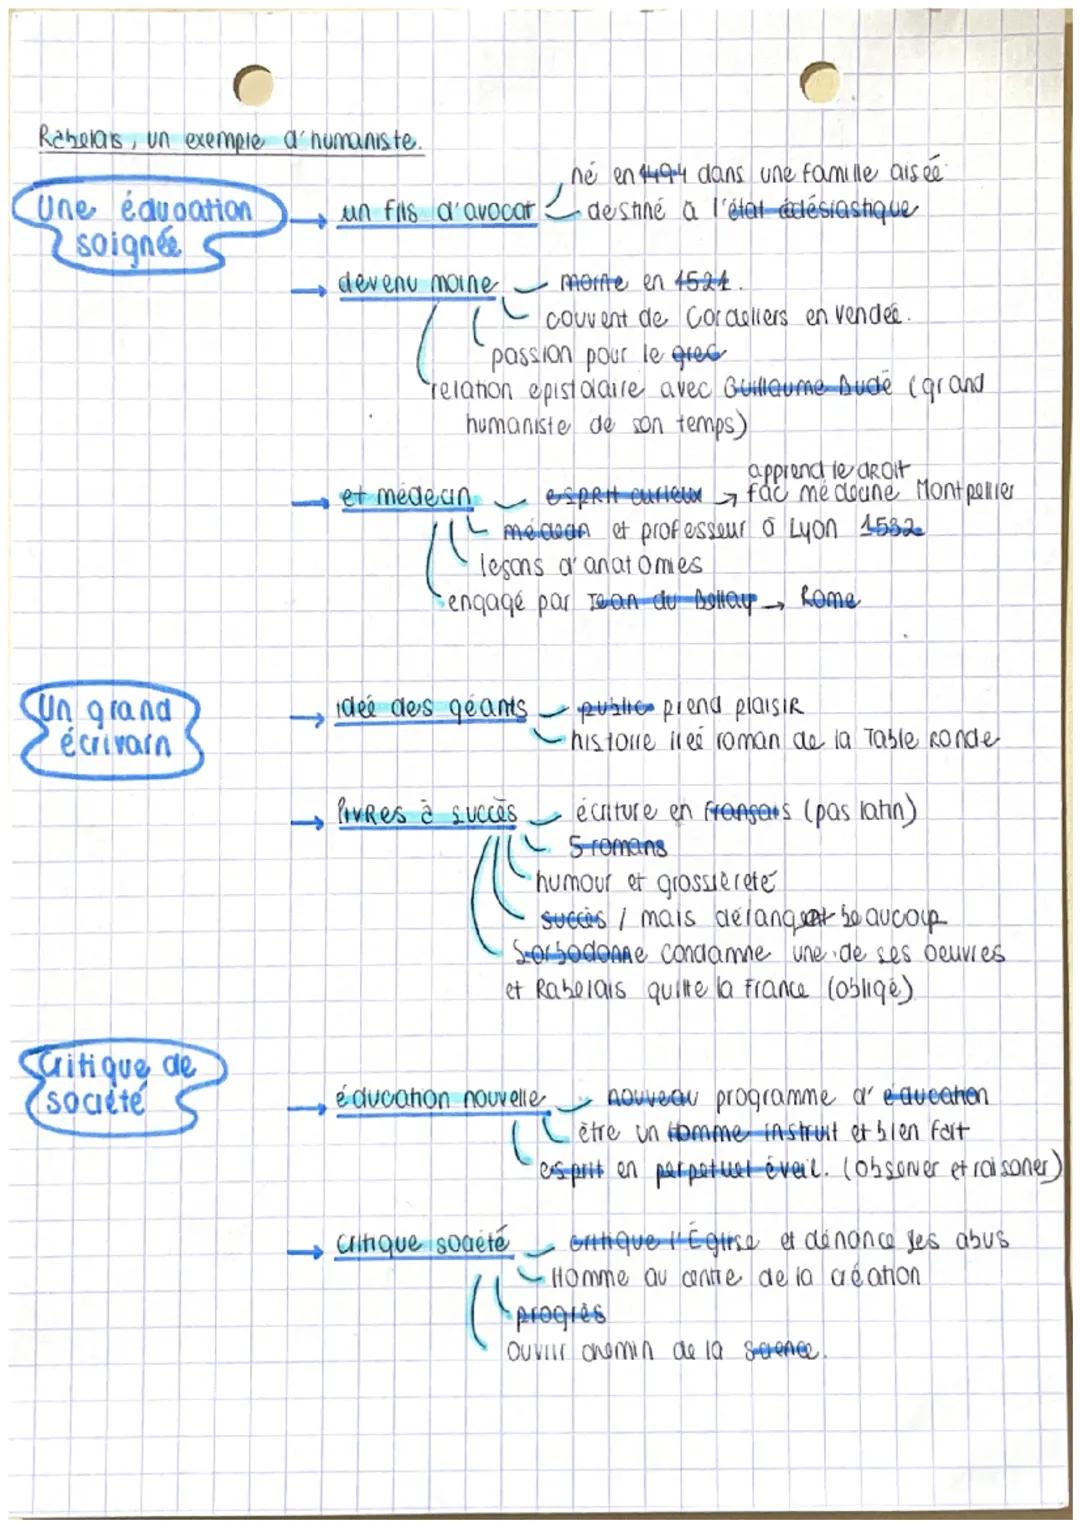 Rabelais, un exemple d'humaniste.
Une éducation
soignée
→ un fils d'avocat
né en 1494 dans une famille aisée
destiné à l'état éclésiastique
→ devenu moine
moine en 1521.
couvent de Cordeliers en vendée.
passion pour le grec
relation epistolaire avec Guillaume Budé (grand
humaniste de son temps)
→ et médecin
esprit curieux →
apprend le droit
fac médecine Montpellier
médecin et professeur à Lyon 1532
leçons d'anatomies
engagé par Jean du Bellay → Rome
Un grand
écrivain
→ idée des géants
public prend plaisir
histoire roman de la Table Ronde
→ livres à succès
écriture en français (pas latin)
5 romans
humour et grossièreté
succès / mais dérangent beaucoup
Sorbodonne condamne une de ses oeuvres
et Rabelais quitte la France (obligé)
Critique de
société
→ éducation nouvelle
nouveau programme d'éducation
être un Homme instruit et bien fait
esprit en perpetuel éveil. (observer et raisoner)
→ critique société
critique l'Église et dénonce ses abus
Homme au centre de la création
progrès
ouvrir chemin de la science.